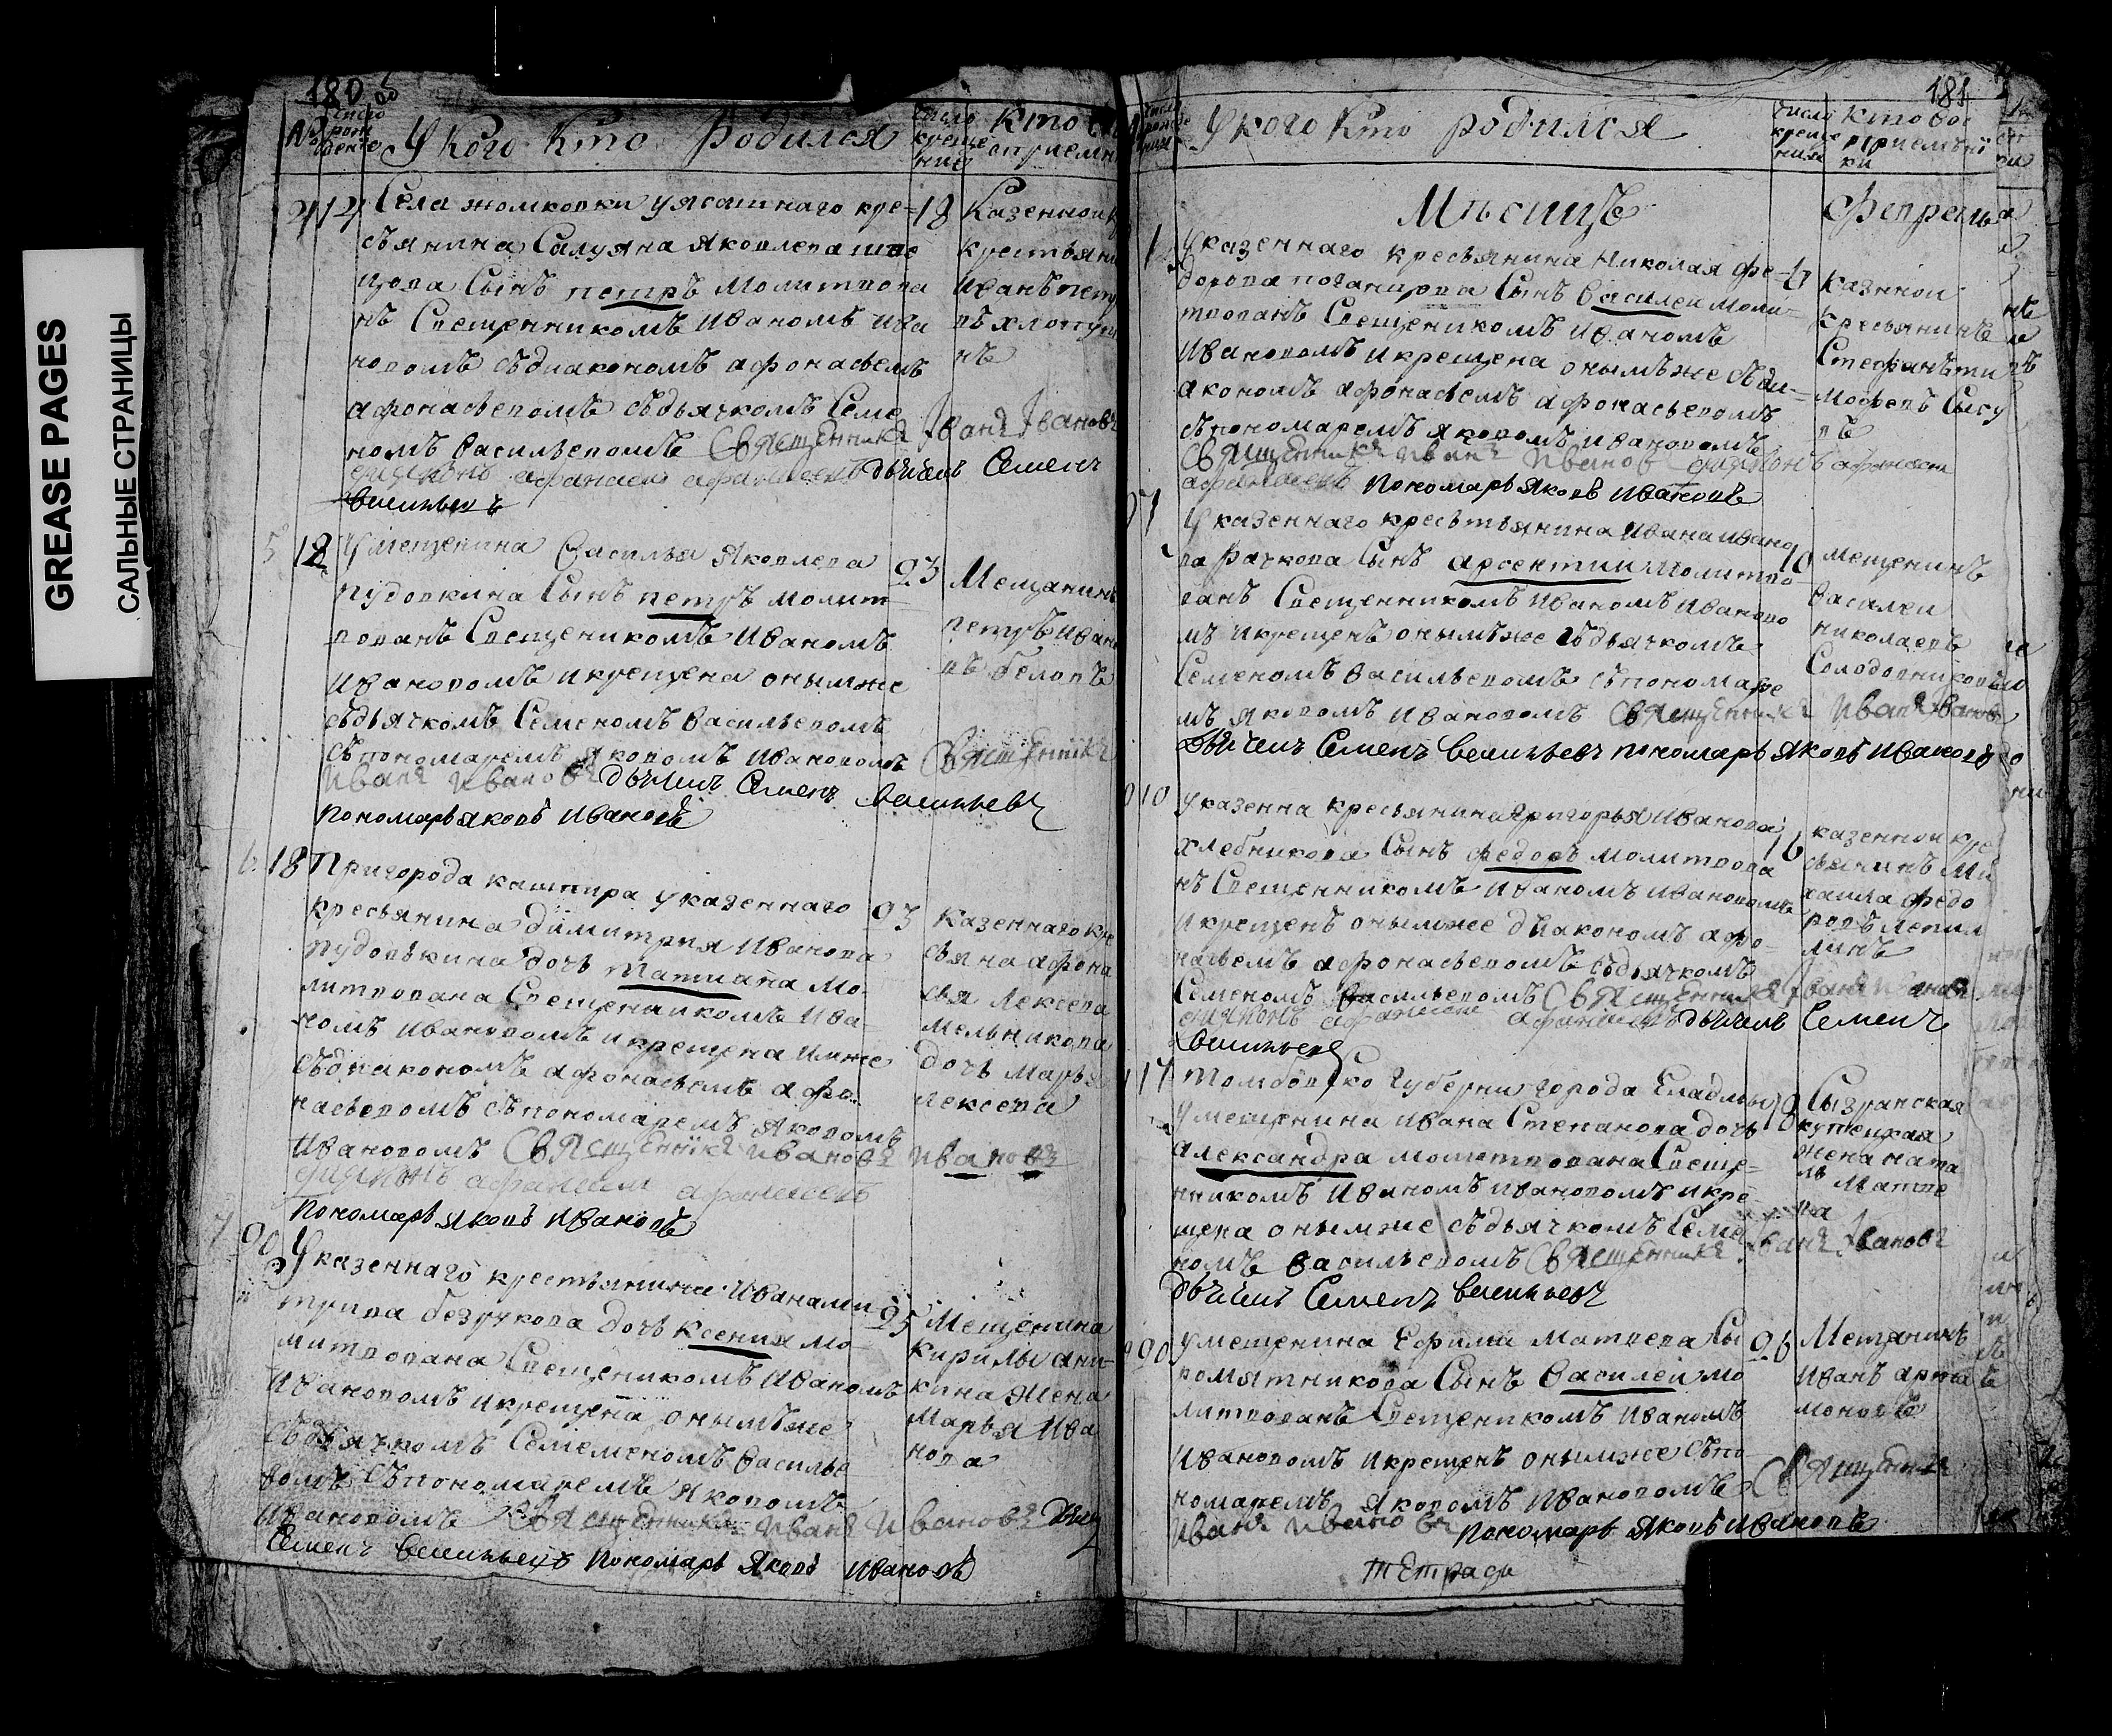 GREASE PAGES
САЛЬНЫЕ СТРАНИЦЫ
180
№
число рождение
У кого кто родился
число крещение
кто
Села жомковки у ясашнаго кре-
сьянина Силуяна Яковлева
цова Сынъ петръ молитвова
нъ Свещенникомъ Иваномъ Ива
новомъ съдиакономъ афонасьемъ
афонасьевомъ съдьячкомъ Семе
номъ Васильевомъ Священникъ Іванъ Івановъ
диаконъ афанасеи афанасевъ дьячекъ Семенъ
Васильевъ
18
Казеннои
крестьяни
Иванъ петро
въ хлопуши
нъ
5 12
У мещенина Василья Яковлева
пудовкина Сынъ петръ молит
вованъ Свещеникомъ Иваномъ
Ивановомъ икрещена онымже
съдьячкомъ Семеномъ Васильевомъ
съпономаремъ Яковомъ Ивановомъ Священникъ
Иванъ Ивановъ дьячекъ Семенъ Васильевъ
пономарь Яковъ Ивановъ
23
Мещанинъ
петръ Ивано
въ беловъ
6 18
Пригорода кашпира у казеннаго
кресьянина димитрия Иванова
пудовкина дочь татиана мо-
литвована Свещеникомъ Ива-
номъ Ивановомъ икрещена имже
съдиакономъ афонасьемъ афо-
насьевомъ съпономаремъ Яковомъ
Ивановомъ Священникъ Иванъ Ивановъ
диаконъ афанасеи афанасевъ
пономарь Яковъ Ивановъ
23
казеннаго кре
сьяна афона
сья Лексеева
мельникова
дочь марья
лексеева
7 20
У казеннаго крестьянина Ивана ми
трива безрукова дочь ксения мо-
митвована Свещеникомъ Иваномъ
Ивановомъ икрещена онымъже
съдьячкомъ Семеменомъ Василье
вомъ съпономаремъ Яковомъ
Ивановомъ Священникъ Иванъ Ивановъ
Семенъ Васильевъ пономарь Яковъ Ивановъ
25
Мещенина
кирилы ани-
кина жена
марья Ива
нова
181
У кого кто родился
число крещения
кто вос
приемни
ки
Мѣсицъ
Февреля
1
У казеннаго кресьянина николая фе-
дорова поганцова Сынъ Василеи моли-
твованъ Свещеникомъ Иваномъ
Ивановомъ икрещена онымъже съди-
акономъ афонасьемъ афонасьевомъ
съпономаремъ яковомъ Ивановомъ
Священникъ Иванъ Ивановъ диаконъ афанасеи
афанасевъ пономарь Яковъ Ивановъ
казннои
кресьянинъ
Стефанъ ти
мофеевъ Сысу
въ
7
У казеннаго крестьянина Ивана Ивано
ва рачкова Сынъ арсентии молитво-
ванъ Свещенникомъ Иваномъ Иваново
мъ икрещенъ онымъже съдьячкомъ
Семеномъ Васильевомъ съпономаре
мъ яковомъ Ивановомъ Священникъ Иванъ Ивановъ
дьячекъ Семенъ Васильевъ пономарь Яковъ Ивановъ
10
мещенинъ
Василеи
николаевъ
Солодовниковъ
10
У казенна кресьянина григорья Иванова
хлебникова Сынъ федоръ молитвова
нъ Свещенникомъ Иваномъ Ивановомъ
икрещенъ онымже диакономъ афо-
насьемъ афонасьевомъ съдьячкомъ
Семеномъ Васильевомъ Священникъ Іванъ Ивановъ
диаконъ афанасеи афанасевъ дьячекъ Семенъ
Васильевъ
16
казеннои кре
сьянинъ Ми
хаила федо
ровъ Лепил
линъ
17
Томбовско Губерни города Еладмы
у мещенина Ивана Степанова дочь
Александра молетвована Свеще-
нникомъ Иваномъ Ивановомъ икре-
щена онымже съдьячкомъ Семе
номъ Васильевомъ Священникъ Іванъ Івановъ
дьячекъ Семенъ Васильевъ
Сызранская
купецкая
жена ната
ль Матве
ва
20
У мещенина Ефима Матвева Сы
ромятникова Сынъ Василеи мо
литвованъ Свещеникомъ Иваномъ
Ивановомъ икрещенъ онымже съпо
номаремъ Яковомъ Ивановомъ Священникъ
Иванъ Ивановъ пономарь Яковъ Ивановъ
26
Мещанинъ
Иванъ арта
моновъ
тЕтрадь